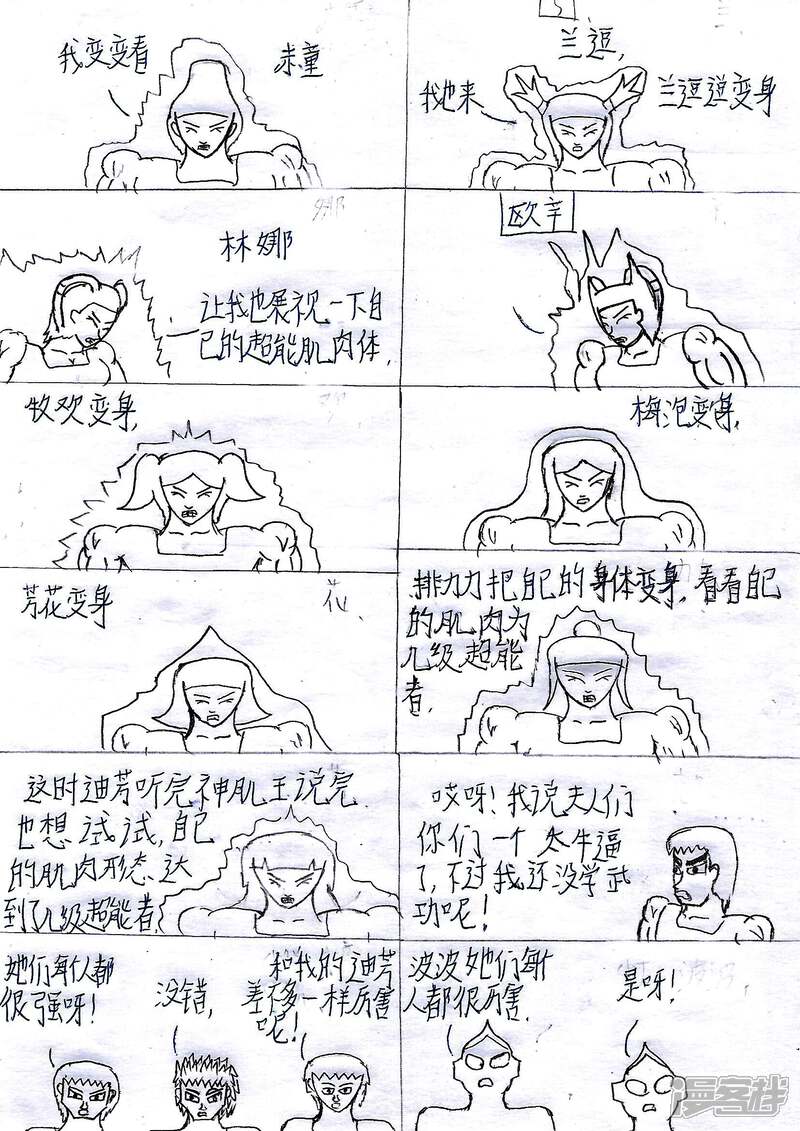 我变变看
赤童
兰逗,
我也来
兰逗逗变身
林娜
让我也展视一下自
己的超能肌肉体.
欧辛
牧欢变身,
梅泡变身,
芳花变身
花
排九力把自己的身体变身.看看自己
的肌肉为
几级超能
者.
这时迪芳听完神肌王说完
也想试试,自己
的肌肉形态、达
到了几级超能者.
哎呀!我说夫人们
你们一个太牛逼
了,不过我还没学武
功呢!
她们每人都
很强呀!
没错,
和我的迪芳
差不多一样厉害
呢!
波波她们每
人都很厉害.
是呀!
漫客栈